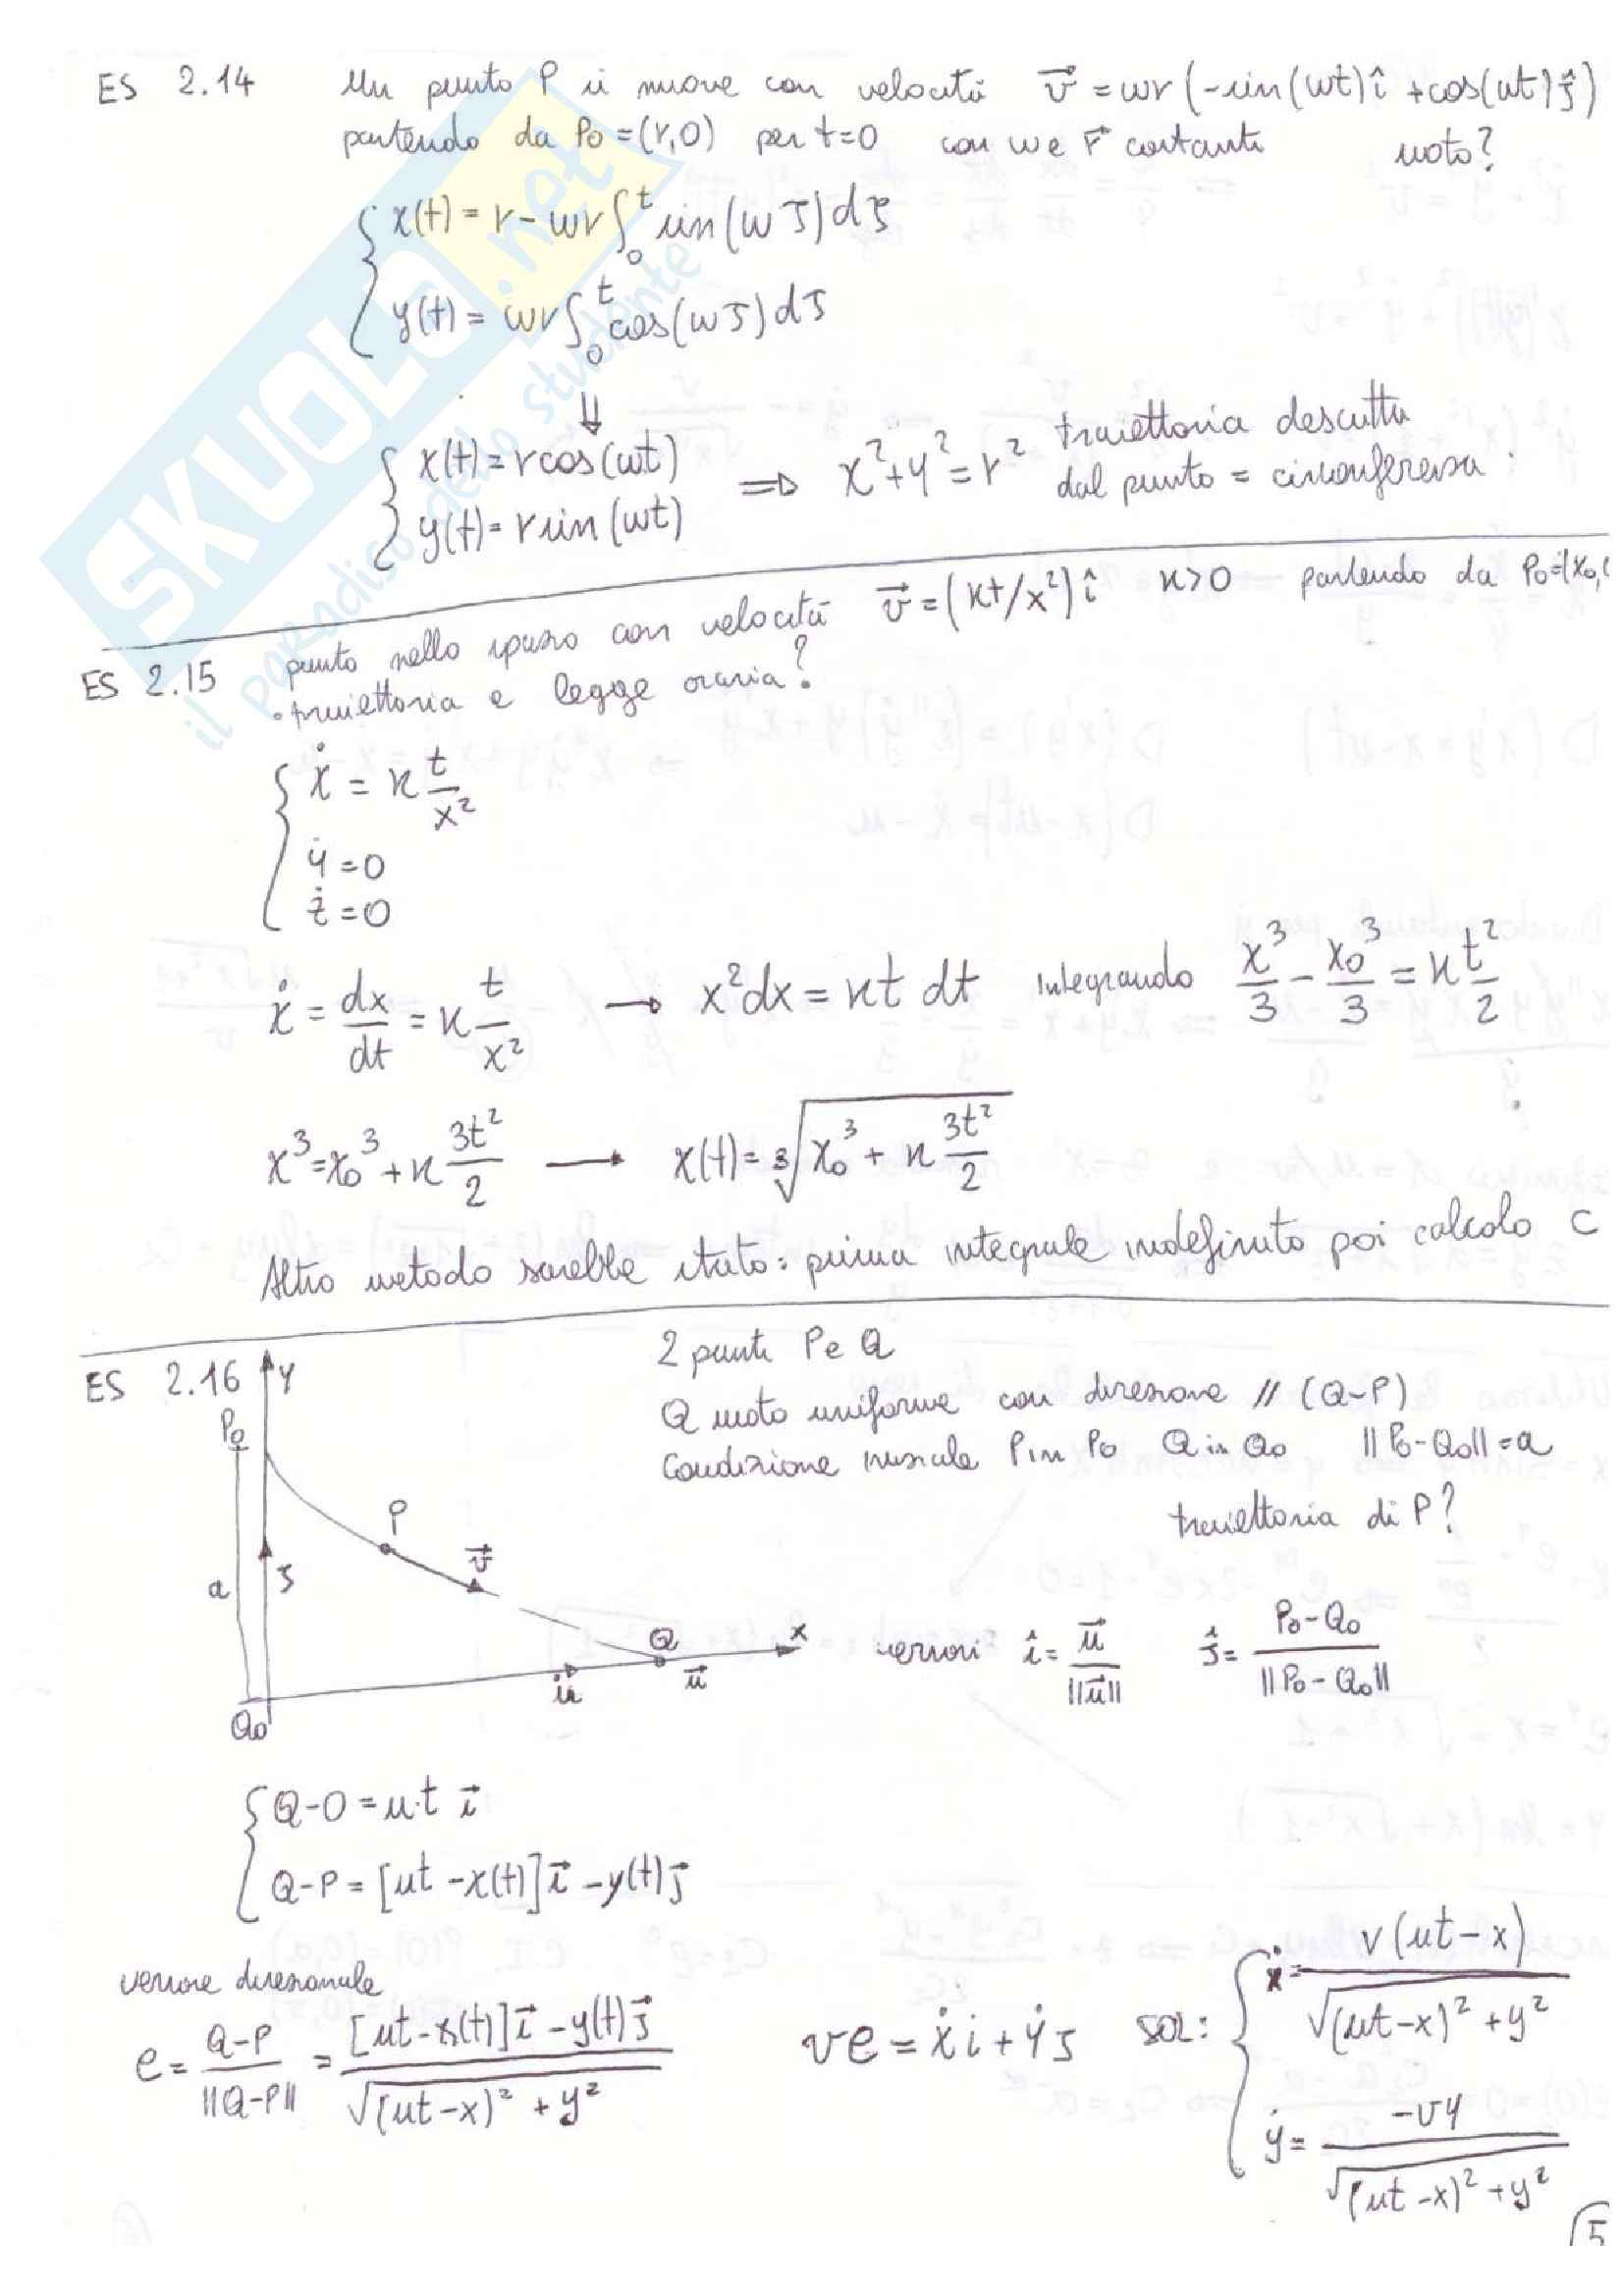 ES 2.14 Un punto P si muove con velocità v⃗ = ωr (-sin(ωt) î + cos(ωt) ĵ)
partendo da P0 = (r,0) per t=0 con ω e r costanti moto?
x(t) = r - ωr ∫₀ᵗ sin(ωζ) dζ
y(t) = ωr ∫₀ᵗ cos(ωζ) dζ
⇓
x(t) = r cos(ωt)
y(t) = r sin(ωt)
⇒ x² + y² = r² traiettoria descritta
dal punto = circonferenza.
ES 2.15 punto nello spazio con velocità v⃗ = (κt/x²) î κ>0 partendo da P0=(x0,
• traiettoria e legge oraria?
ẋ = κ t/x²
ẏ = 0
ż = 0
ẋ = dx/dt = κ t/x² → x²dx = κt dt integrando x³/3 - x0³/3 = κ t²/2
x³ = x0³ + κ 3t²/2 → x(t) = ∛(x0³ + κ 3t²/2)
Altro metodo sarebbe stato: prima integrale indefinito poi calcolo C
ES 2.16
2 punti P e Q
Q moto uniforme con direzione // (Q-P)
Condizione iniziale P in P0 Q in Q0 ||P0-Q0|| = a
traiettoria di P?
y
P0
P
v⃗
a
J
Q
x
u⃗
Q0
versori î = u⃗/||u⃗|| ĵ = P0-Q0/||P0-Q0||
Q-O = u·t i⃗
Q-P = [ut - x(t)] i⃗ - y(t) j⃗
versore direzionale
e = Q-P/||Q-P|| = [ut-x(t)] i⃗ - y(t) j⃗/√((ut-x)² + y²)
ve = ẋi + ẏj
SOL: ẋ = v(ut-x)/√((ut-x)² + y²)
ẏ = -vy/√((ut-x)² + y²)
5
SKUOLA.net
il paradiso dello studente